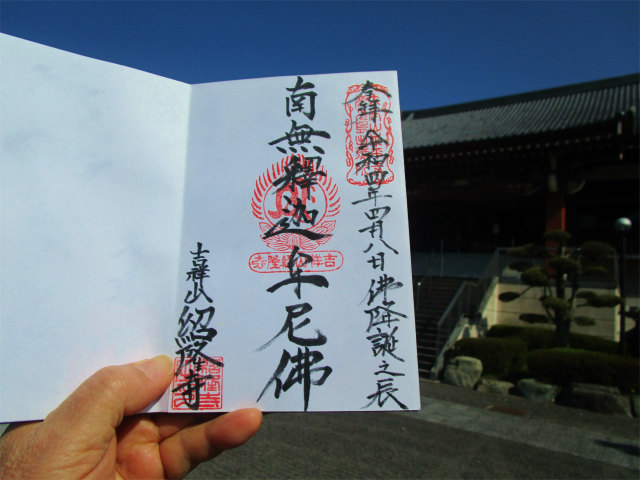 奉拝 令和四年四月八日佛降誕之辰
南無釋迦牟尼佛
吉祥山紹隆寺
吉祥山 紹隆寺